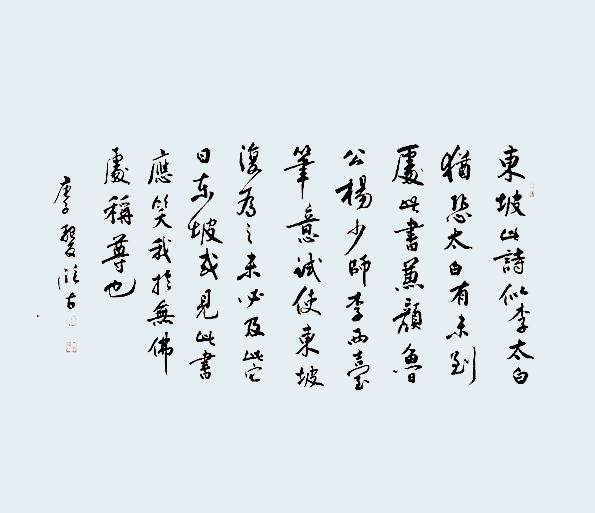 東坡此詩似李太白
猶恐太白有未到
處此書兼顏魯
公楊少師李西臺
筆意試使東坡
復為之未必及此它
日東坡或見此書
應笑我於無佛
處稱尊也